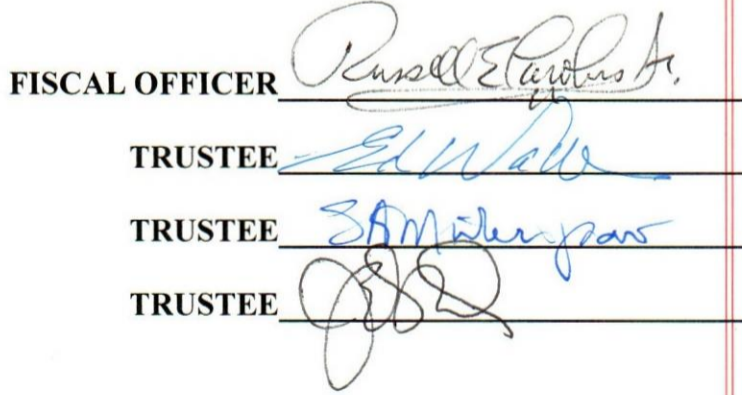 FISCAL OFFICER Russell E Carolus Jr.
TRUSTEE Ed Wall
TRUSTEE
TRUSTEE